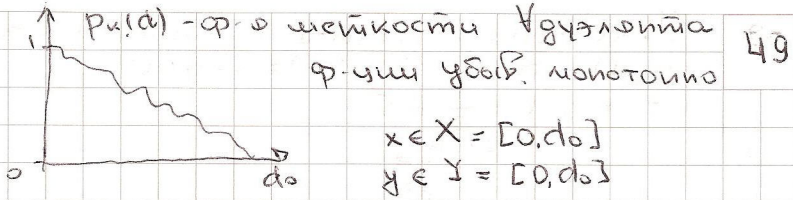 Pк(d) - ф-я меткости ∀ дуэлянта
49
ф-ции убыв. монотонно
1
x ∈ X = [0, d₀]
y ∈ Y = [0, d₀]
0
d₀